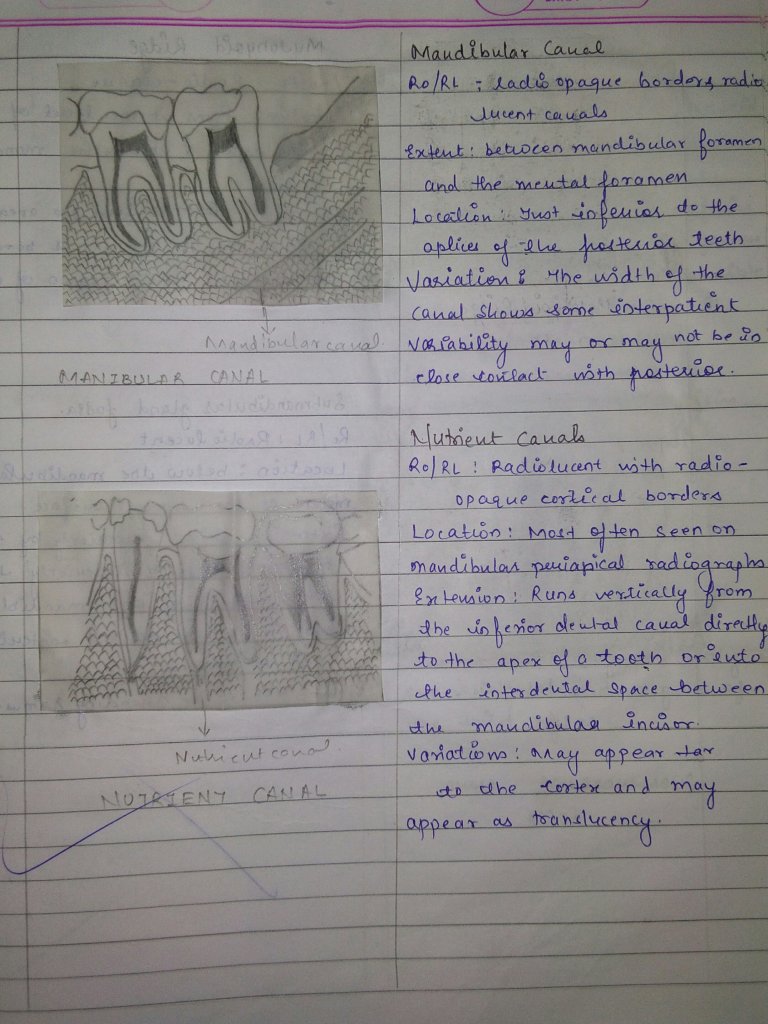 Mandibularcanal
MANIBULAR CANAL
Nutrient canal
NUTRIENT CANAL
Mandibular Canal
RO/RL : radio opaque borders, radio
lucent canals
Extent: between mandibular foramen
and the mental foramen
Location: Just inferior to the
aplices of the posterior teeth
Variation: The width of the
canal shows some interpatient
variability may or may not be in
close contact with posterior.
Nutrient Canals
RO/RL : Radiolucent with radio-
opaque cortical borders
Location: Most often seen on
mandibular periapical radiographs
Extension: Runs vertically from
the inferior dental canal directly
to the apex of a tooth or into
the interdental space between
the mandibular incisor.
Variations: May appear
to the cortex and may
appear as translucency.